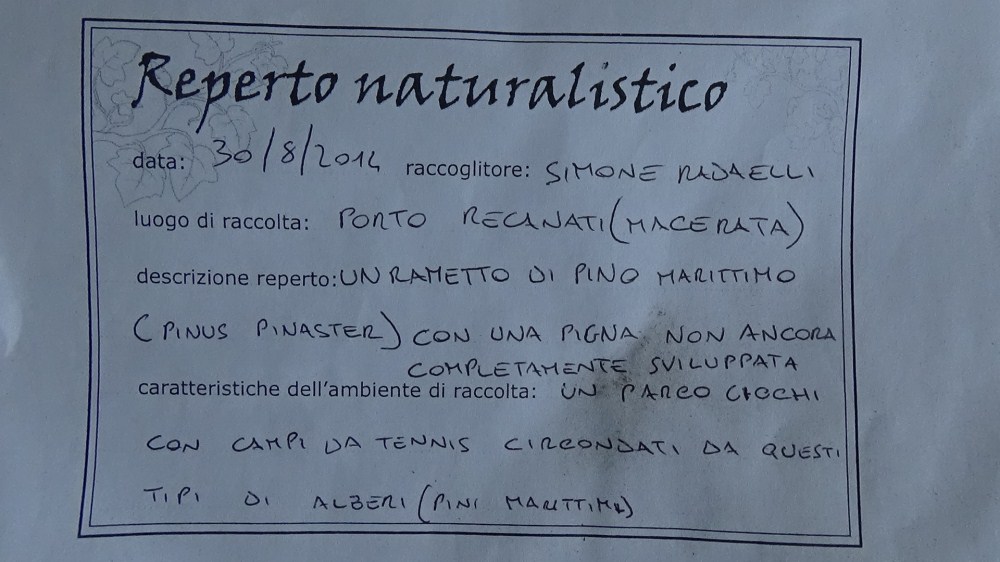 Reperto naturalistico
data: 30/8/2014 raccoglitore: SIMONE RADAELLI
luogo di raccolta: PORTO RECANATI (MACERATA)
descrizione reperto: UN RAMETTO DI PINO MARITTIMO
(PINUS PINASTER) CON UNA PIGNA NON ANCORA
COMPLETAMENTE SVILUPPATA
caratteristiche dell'ambiente di raccolta: UN PARCO GIOCHI
CON CAMPI DA TENNIS CIRCONDATI DA QUESTI
TIPI DI ALBERI (PINI MARITTIMI)